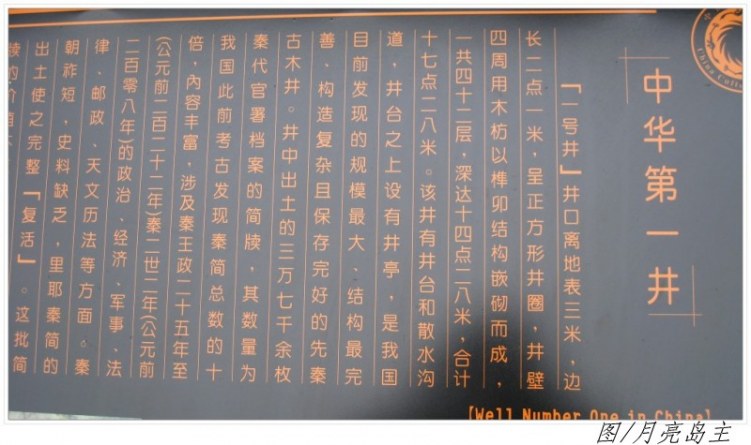 中华第一井
「一号井」井口离地表三米,边
长二点一米,呈正方形井圈,井壁
四周用木枋以榫卯结构嵌砌而成,
一共四十二层,深达十四点二八米,合计
十七点二八米。该井有井台和散水沟
道,井台之上设有井亭,是我国
目前发现的规模最大、结构最完
善、构造复杂且保存完好的先秦
古木井。井中出土的三万七千余枚
秦代官署档案的简牍,其数量为
我国此前考古发现秦简总数的十
倍,内容丰富,涉及秦王政二十五年至
(公元前二百二十二年)秦二世二年(公元前
二百零八年)的政治、经济、军事,法
律、邮政、天文历法等方面。秦
朝祚短,史料缺乏,里耶秦简的
出土使之完整「复活」。这批简
牍的价值
China Cultu
[Well Number One in China]
图/月亮岛主